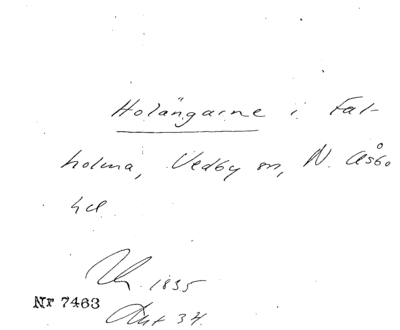 Holängarne i Fal-
holma, Vedby sn, N. Åsbo
hd
1895
Nr 7463
34.